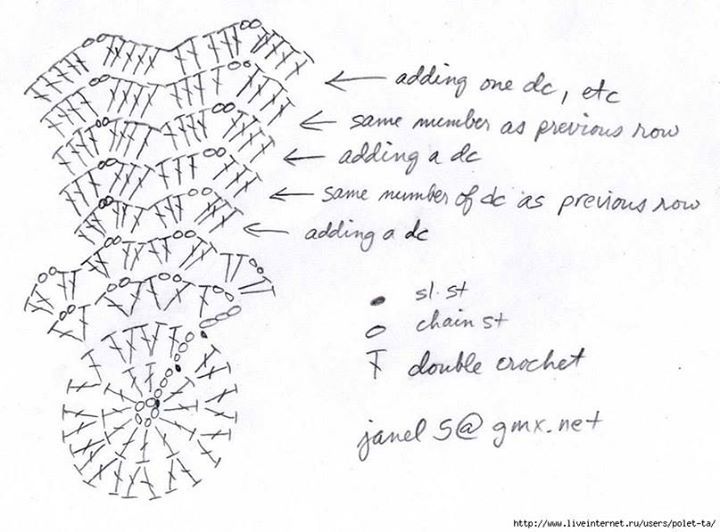 adding one dc, etc
same number as previous row
adding a dc
same number of dc as previous row
adding a dc
sl. st
chain st
double crochet
janel5@gmx.net
http://www.liveinternet.ru/users/polet-ta/